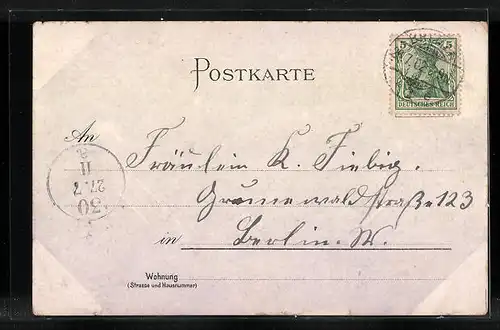 5 5
DEUTSCHES REICH
POSTKARTE
An
Fräulein K. Fiebig.
Grunewaldstraße 123
in Berlin. W.
27. 7
30
Wohnung
(Strasse und Hausnummer)